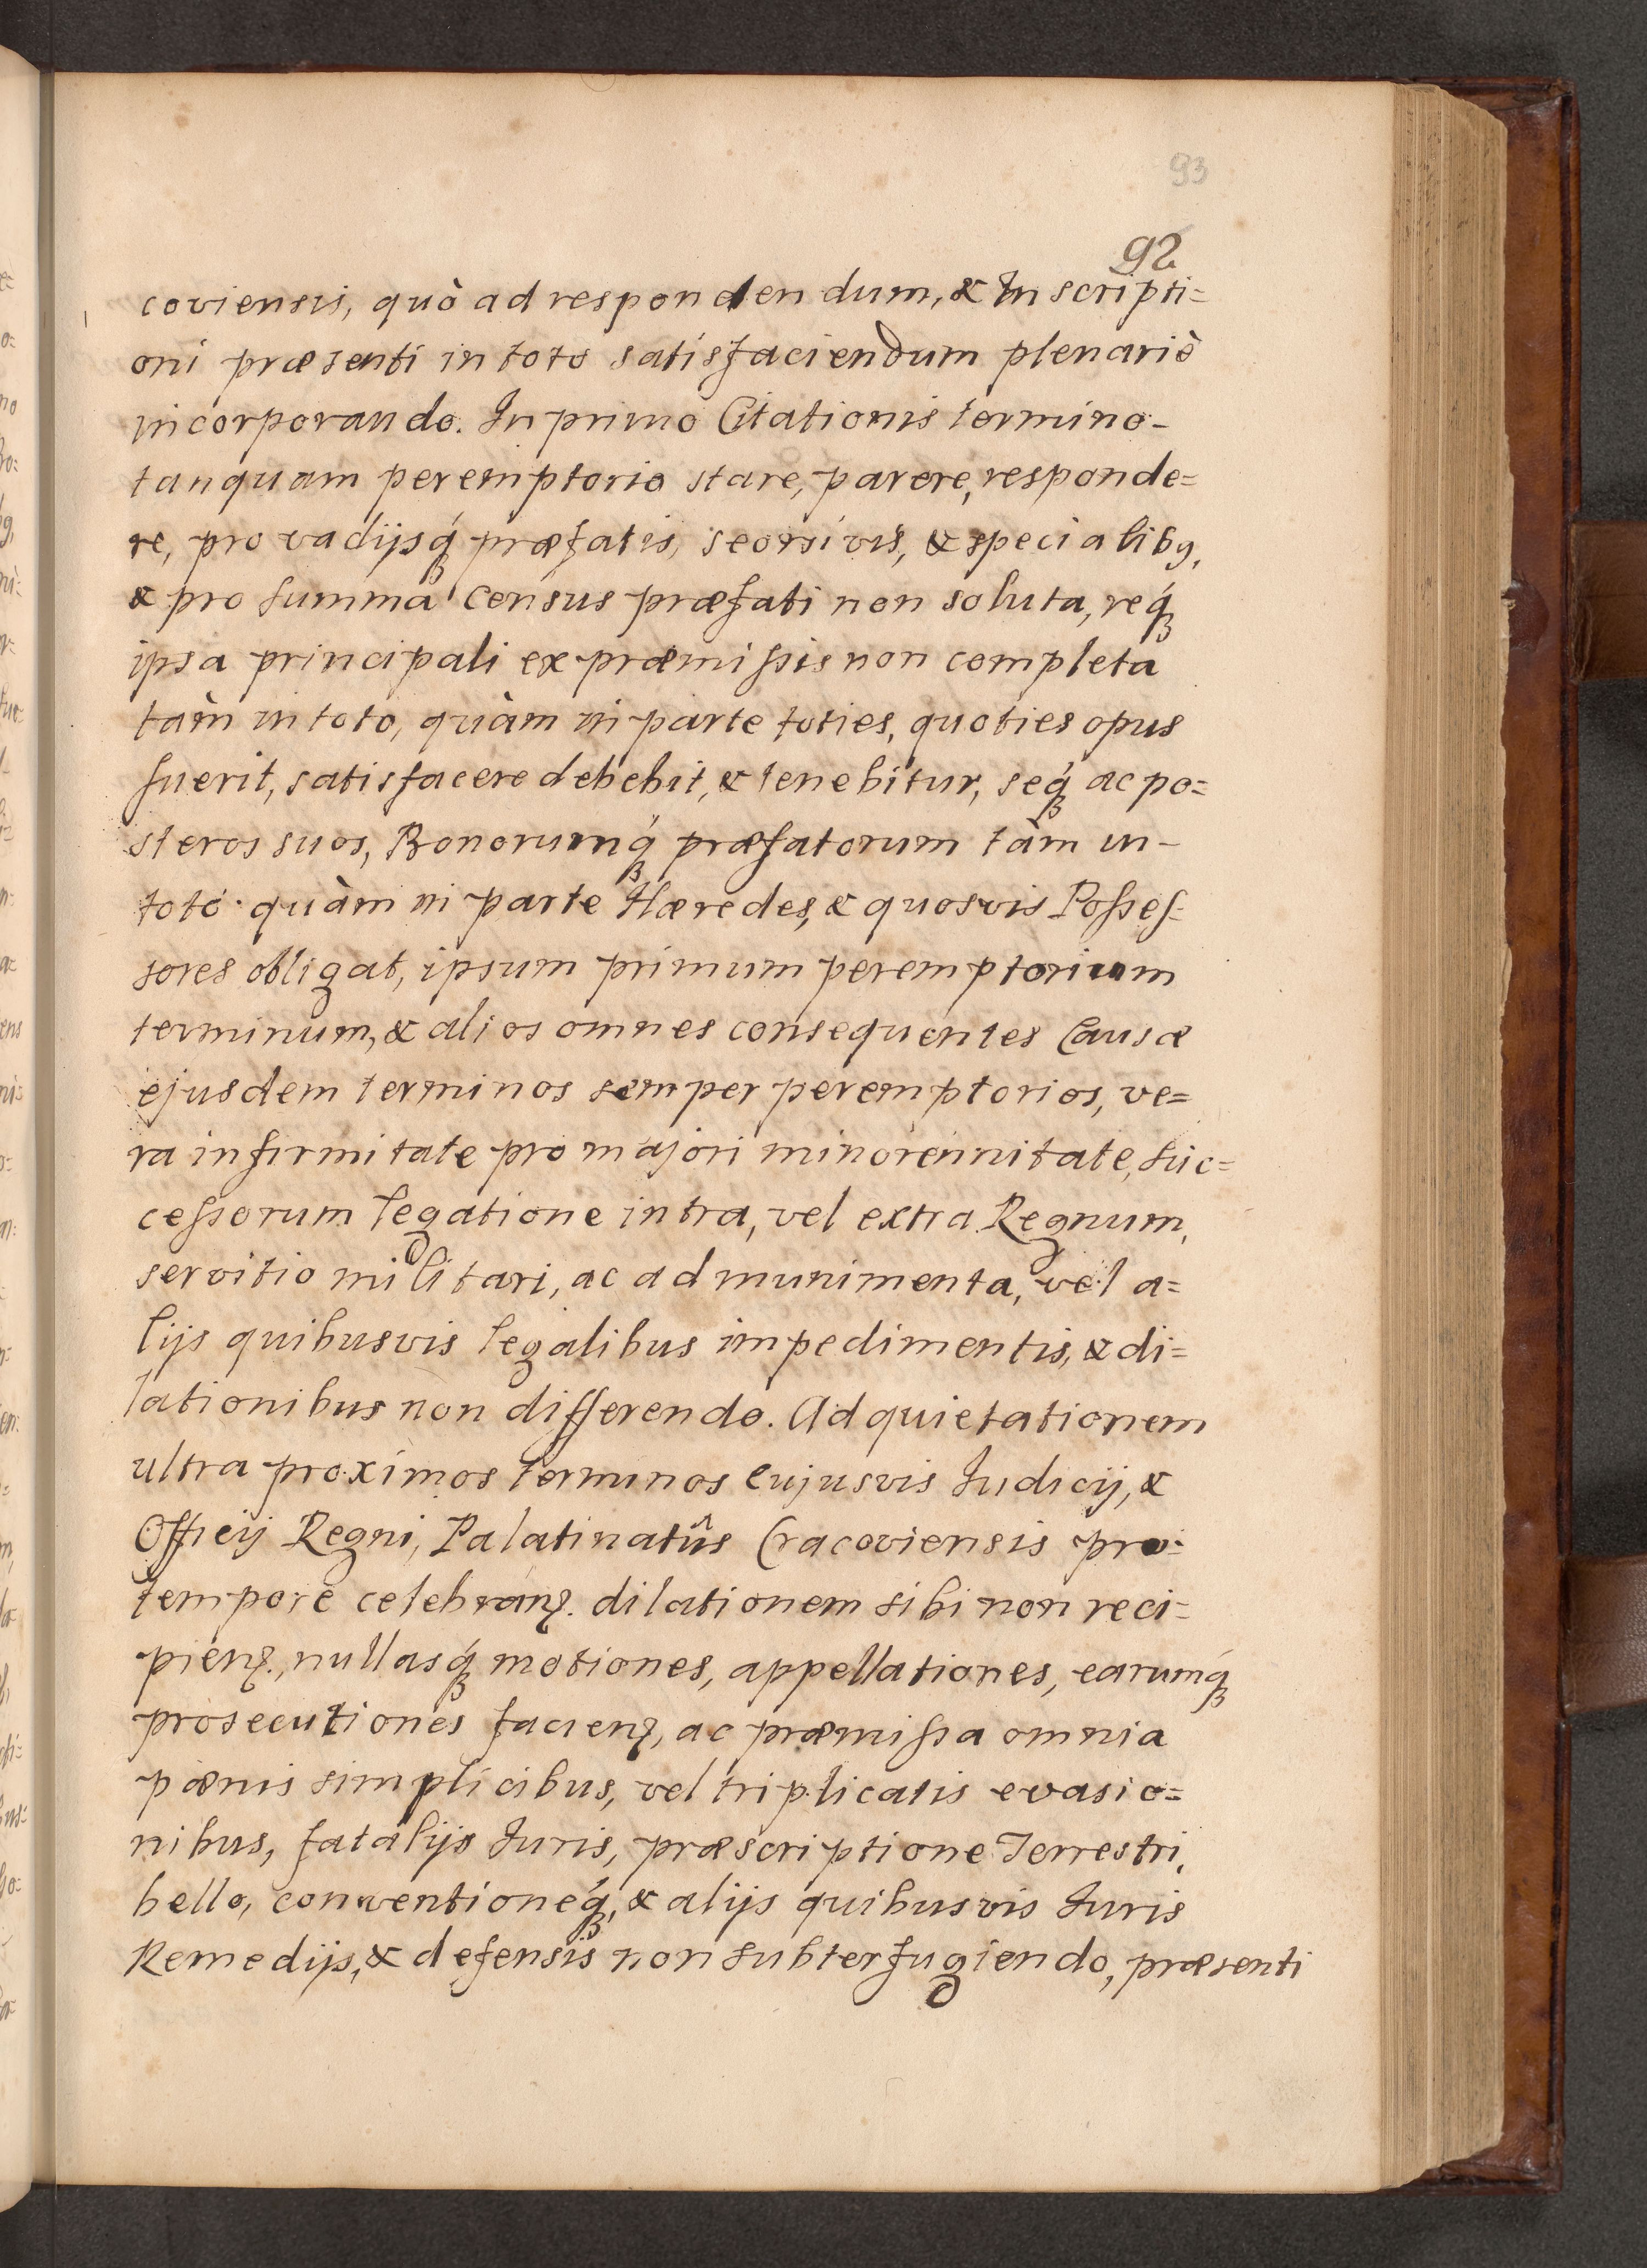 93
92
coviensis, quò ad respondendum, & Inscripti=
oni præsenti in toto satisfaciendum plenariè
incorporando. In primo Citationis termino-
tanquam peremptorio stare, parere, responde=
re, pro vadijsq́ꝫ præfatis, seorsivis, & specialibꝰ,
& pro summa census præfati non soluta, req́ꝫ
ipsa principali ex præmissis non completa
tàm in toto, quàm in parte toties, quoties opus
fuerit, satisfacere debebit, & tenebitur, seq́ꝫ ac po=
steros suos, Bonorumq́ꝫ præfatorum tàm in-
toto quàm in parte Hæredes, & quosvis Posses=
sores obligat, ipsum primum peremptorium
terminum, & alios omnes consequentes Causæ
ejusdem terminos semper peremptorios, ve=
ra infirmitate pro majori minorennitate, suc=
cessorum legatione intra, vel extra Regnum,
servitio militari, ac ad munimenta, vel a=
lijs quibusvis legalibus impedimentis, & di=
lationibus non differendo. Ad quietationem
ultra proximos terminos cujusvis Judicij, &
Officij Regni, Palatinatûs Cracoviensis pro=
tempore celebranꝫ. dilationem sibi non reci=
pienꝫ., nullasq́ꝫ motiones, appellationes, earumq́ꝫ
prosecutiones facienꝫ, ac præmissa omnia
pænis simplicibus, vel triplicatis evasio=
nibus, fatalijs Juris, præscriptione Terrestri,
bello, conventioneq́ꝫ, & alijs quibusvis Juris
Remedijs, & defensis non subterfugiendo, præsenti